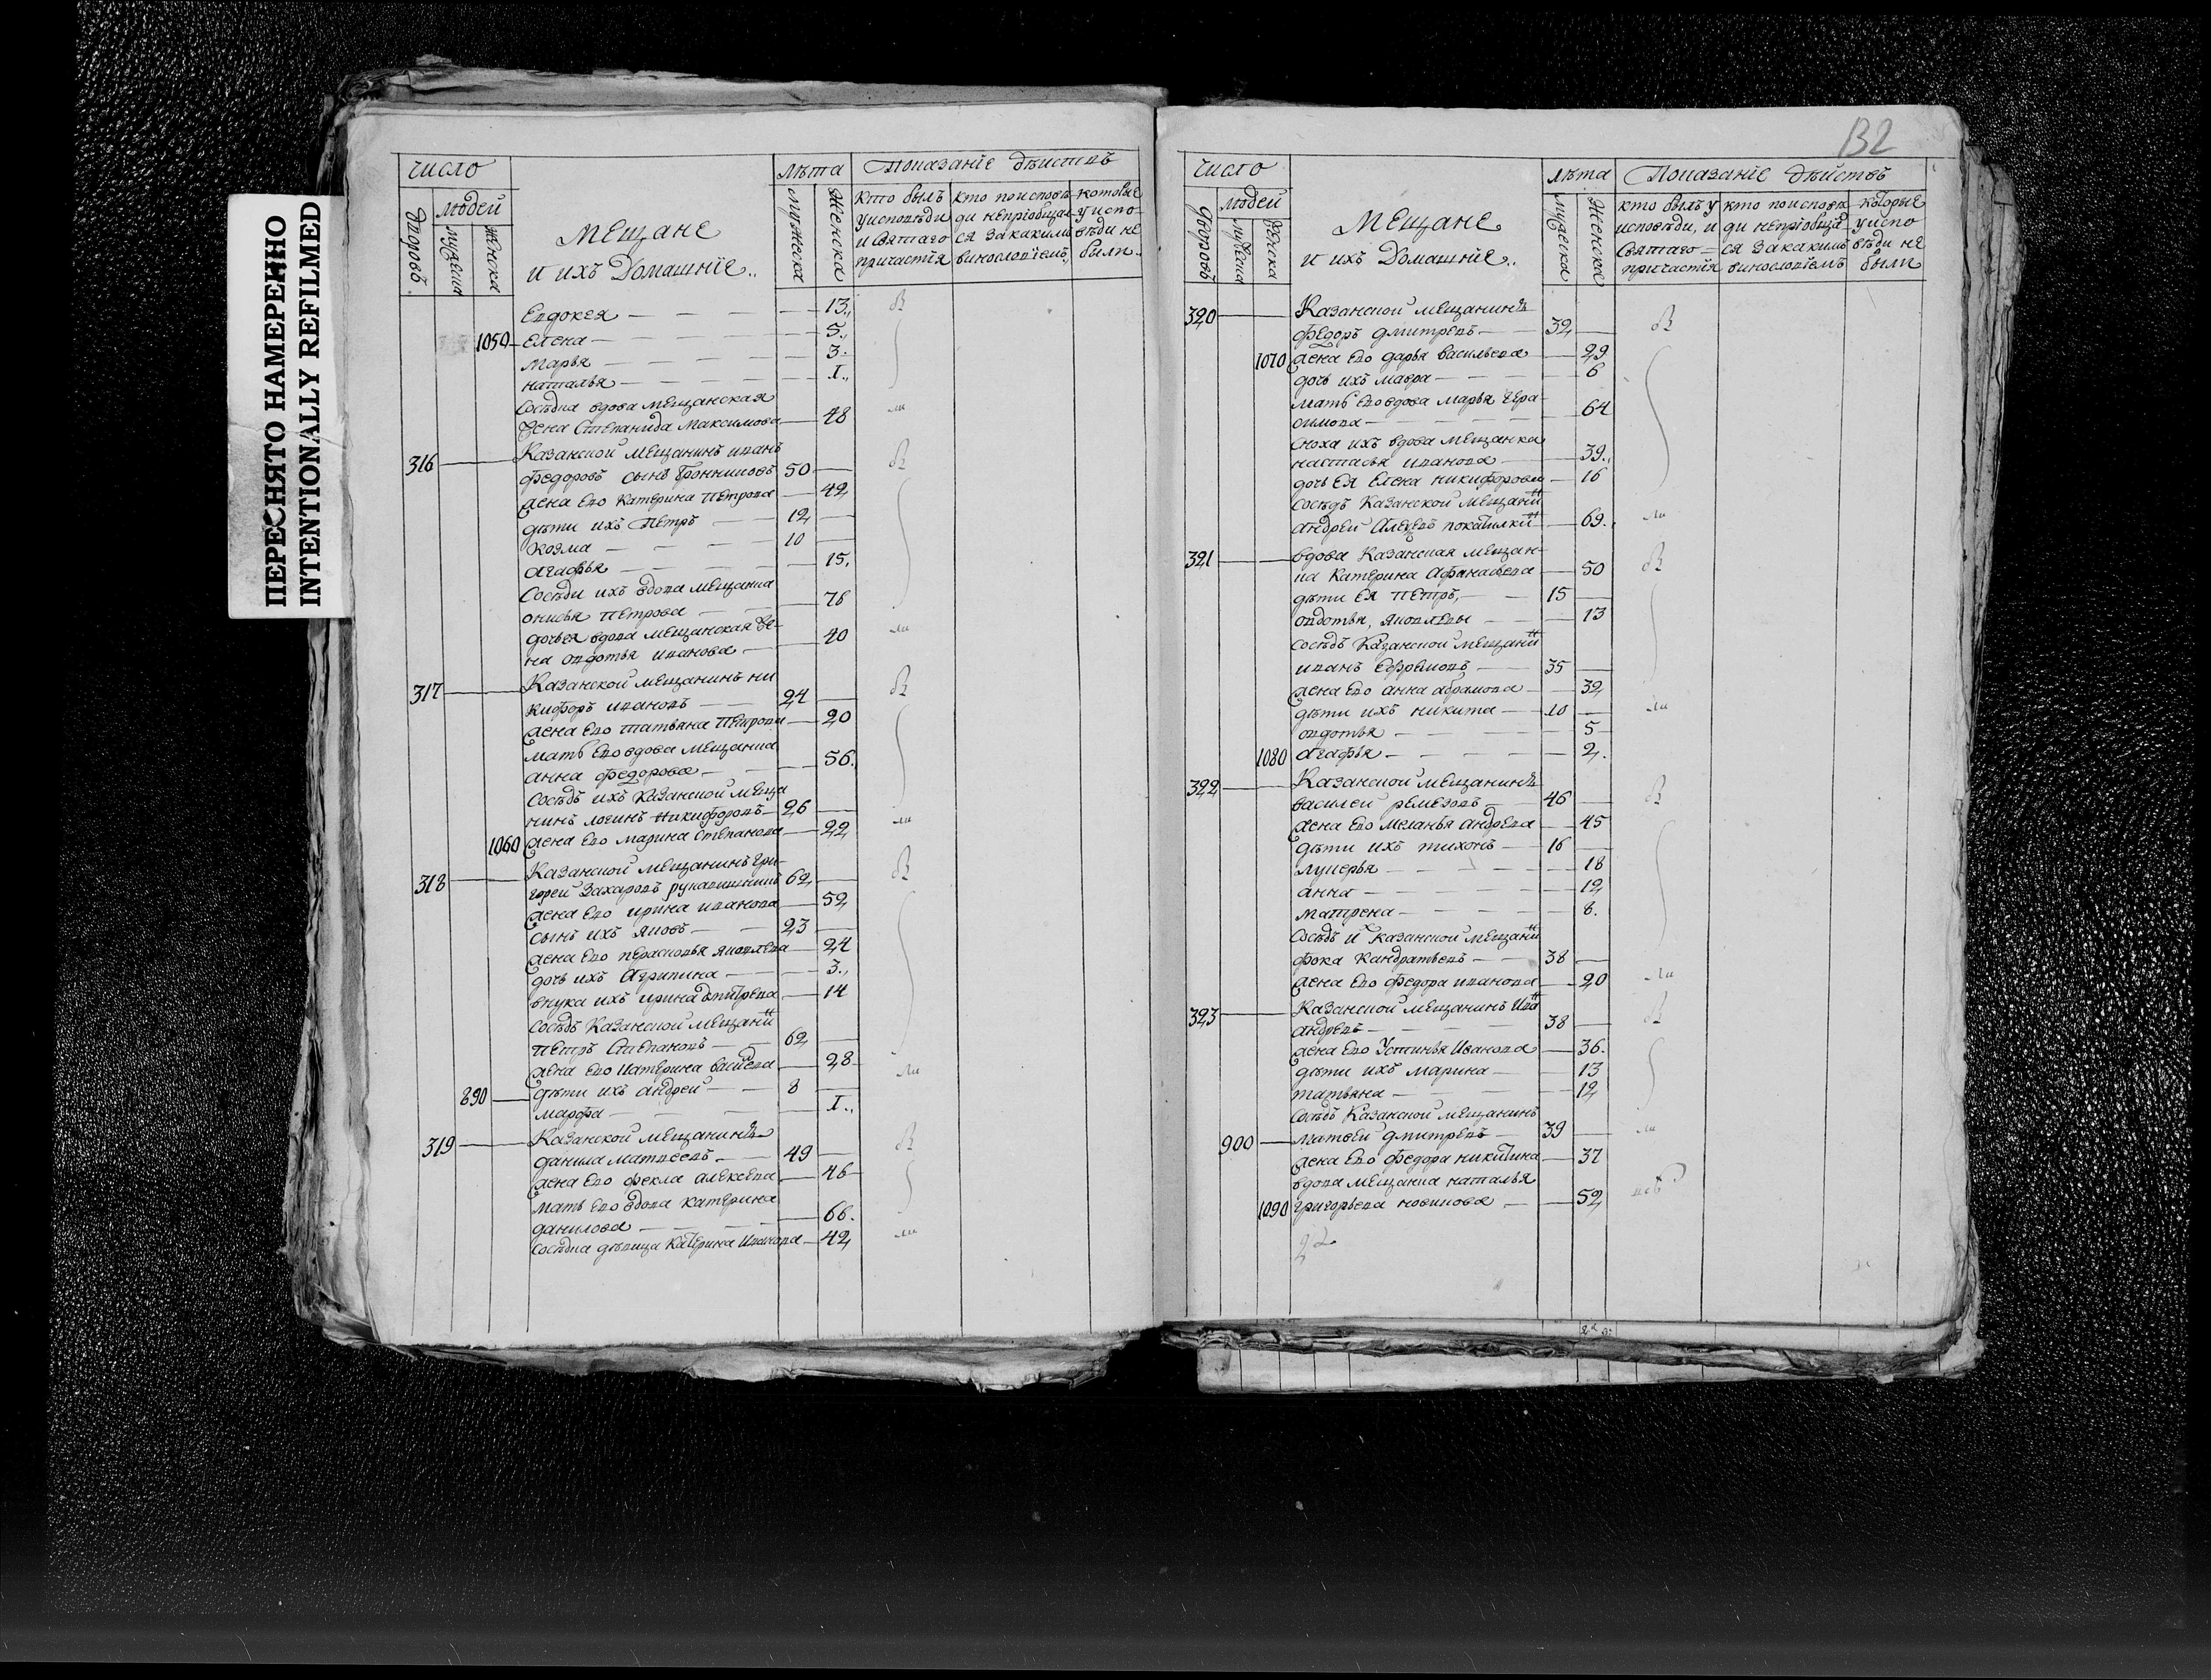 ПЕРЕСНЯТО НАМЕРЕННО
INTENTIONALLY REFILMED
число
лѣта Показанїе дѣиствъ
людей
дворовъ
мужеска
женска
Мещане
и ихъ Домашнїе..
мужеска
женска
кто былъ
у исповѣди
и святаго
причастїя
кто по исповѣ-
ди непрїобщал
ся за какимъ
винословїемъ
которые
у испо-
вѣди не
были..
Евдокея 13.,
1050 Елена 5.,
марья 3.
наталья I.,
Сосѣдка вдова мещанская
жена Степанида Максимова 48
316 Казанской мещанинъ иванъ
федоровъ сынъ Бронниковъ 50
жена Ево катерина петрова 42
дѣти ихъ петръ 12
козма 10
агафья 15.
Сосѣди ихъ вдова мещанка
онисья петрова 76
дочь ея вдова мещанская же-
на овдотья иванова 40
317 Казанской мещанинъ ни
кифоръ ивановъ 24
жена Ево татьяна петрова 20
мать Ево вдова мещанка
анна федорова 56.
Сосѣдъ ихъ Казанской меща
нинъ логинъ никифоровъ 26
1060 жена Ево марина степанова 22
318 Казанской мещанинъ гри-
горей Захаровъ рукавишникъ 62
жена Ево ирина иванова 52
сынъ ихъ яковъ 23
жена Ево перасковья яковлева 24
дочь ихъ агрипина 3.,
внука ихъ ирина дмитрева 14
сосѣдъ Казанской мещани
петръ Степановъ 62
жена Ево катерина василева 28
890 дѣти ихъ андреи 8
марфа I.,
319 Казанской мещанинъ
данила матвеевъ 49
жена Ево фекла алексева 46
мать Ево вдова катерина
данилова 66.
сосѣдка дѣвица катерина иванова 42
132
число
лѣта Показанїе дѣиствъ
людей
дворовъ
мужеска
женска
Мещане
и ихъ Домашнїе..
мужеска
женска
кто былъ у
исповѣди, и
святаго
причастїя
кто по исповѣ
ди непрїобща
ся за какимъ
винословїемъ
которые
у испо
вѣди не
были
320 Казанской мещанинъ
федоръ дмитревъ 32
1070 жена Ево дарья васильева 29
дочь ихъ мавра 6
мать Ево вдова марья гера-
симова 64
сноха ихъ вдова мещанка
настасья иванова 39.,
дочь Ея Елена никифорова 16
сосѣдъ Казанской мещани
андрей алеѯевъ 69.
321 вдова Казанская мещан-
ка катерина афанасева 50
дѣти Ея петръ, 15
овдотья, яковлевы 13
сосѣдъ Казанской мещани
иванъ Ефремовъ 35
жена Ево анна абрамова 32
дѣти ихъ никита 10
овдотья 5
1080 агафья 2.
322 Казанской мещанинъ
василеи ремезовъ 46
жена Ево меланья андрева 45
дѣти ихъ тихонъ 16
лукерья 18
анна 12
матрена 8.
Сосѣдъ и Казанской мещани
фока кандратьевъ 38
жена Ево федора иванова 20
323 Казанской мещанинъ ива
андревъ 38
жена Ево Устинья Иванова 36.
дѣти ихъ марина 13
татьяна 12
Сосѣдъ Казанской мещанинъ
900 матвеи дмитревъ 39
жена Ево федора никитина 37
вдова мещанка наталья
1090 григорьева новикова 52